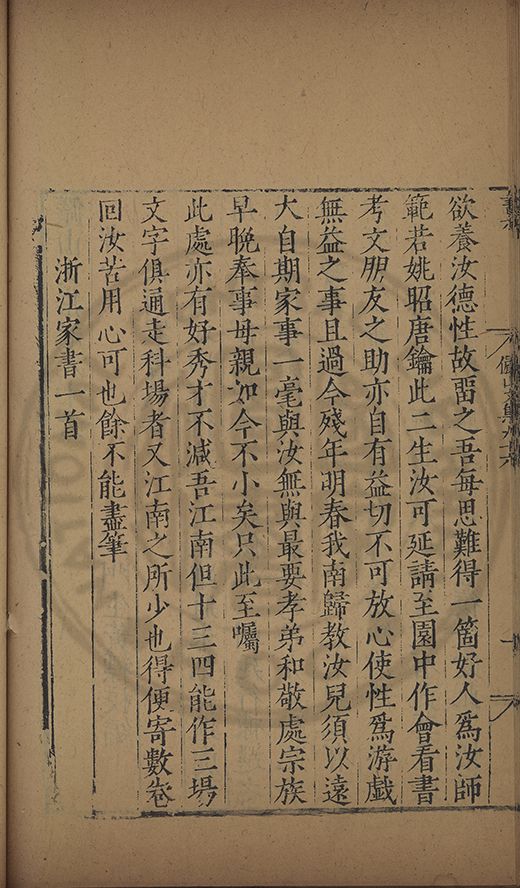 欲養汝德性故畱之吾每思難得一箇好人爲汝師
範若姚昭唐鑰此二生汝可延請至園中作會看書
考文朋友之助亦自有益切不可放心使性爲游戲
無益之事且過今殘年明春我南歸教汝兒須以遠
大自期家事一毫與汝無與最要孝弟和敬處宗族
早晩奉事母親如今不小矣只此至囑
此處亦有好秀才不減吾江南但十三四能作三場
文字俱通走科場者又江南之所少也得便寄數卷
回汝苦用心可也餘不能盡筆
浙江家書一首